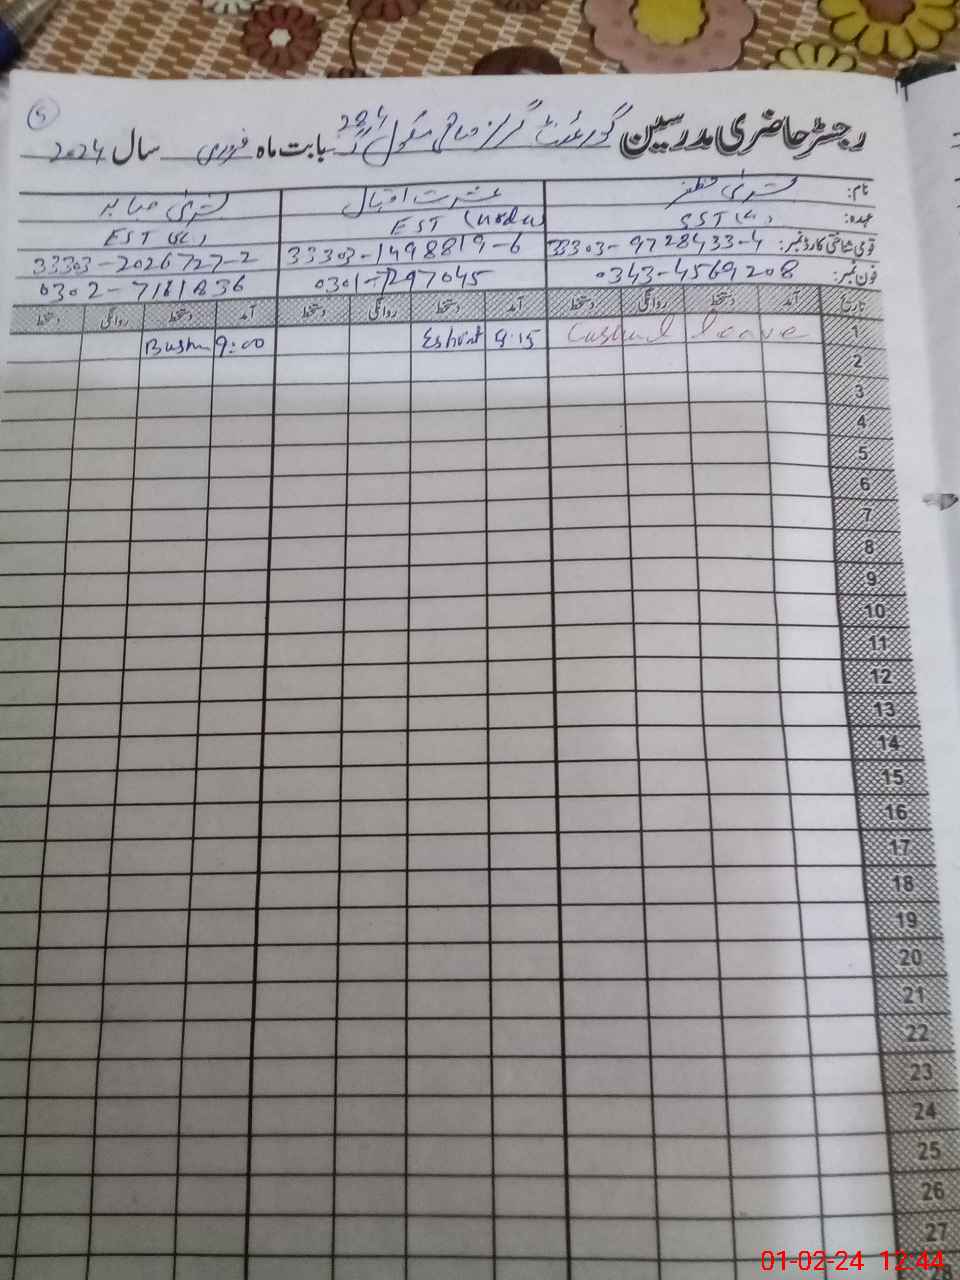 5
رجسٹر حاضری مدرسین گورنمنٹ گرلز ہائی سکول 284 بابت ماہ فروری سال 2024
نام: بشریٰ عشرت اقبال بشریٰ صابر
عہدہ: SST EST (Urdu) EST
قومی شناختی کارڈ نمبر: 33303-9728433-4 33303-1498819-6 33303-2026727-2
فون نمبر: 0343-4569208 0301-7297045 0302-7181836
تاریخ آمد دستخط روانگی دستخط آمد دستخط روانگی دستخط آمد دستخط روانگی دستخط
1 Casual leave 9:15 Eshrat 9:00 Bushra
2
3
4
5
6
7
8
9
10
11
12
13
14
15
16
17
18
19
20
21
22
23
24
25
26
27
28
01-02-24 12:44